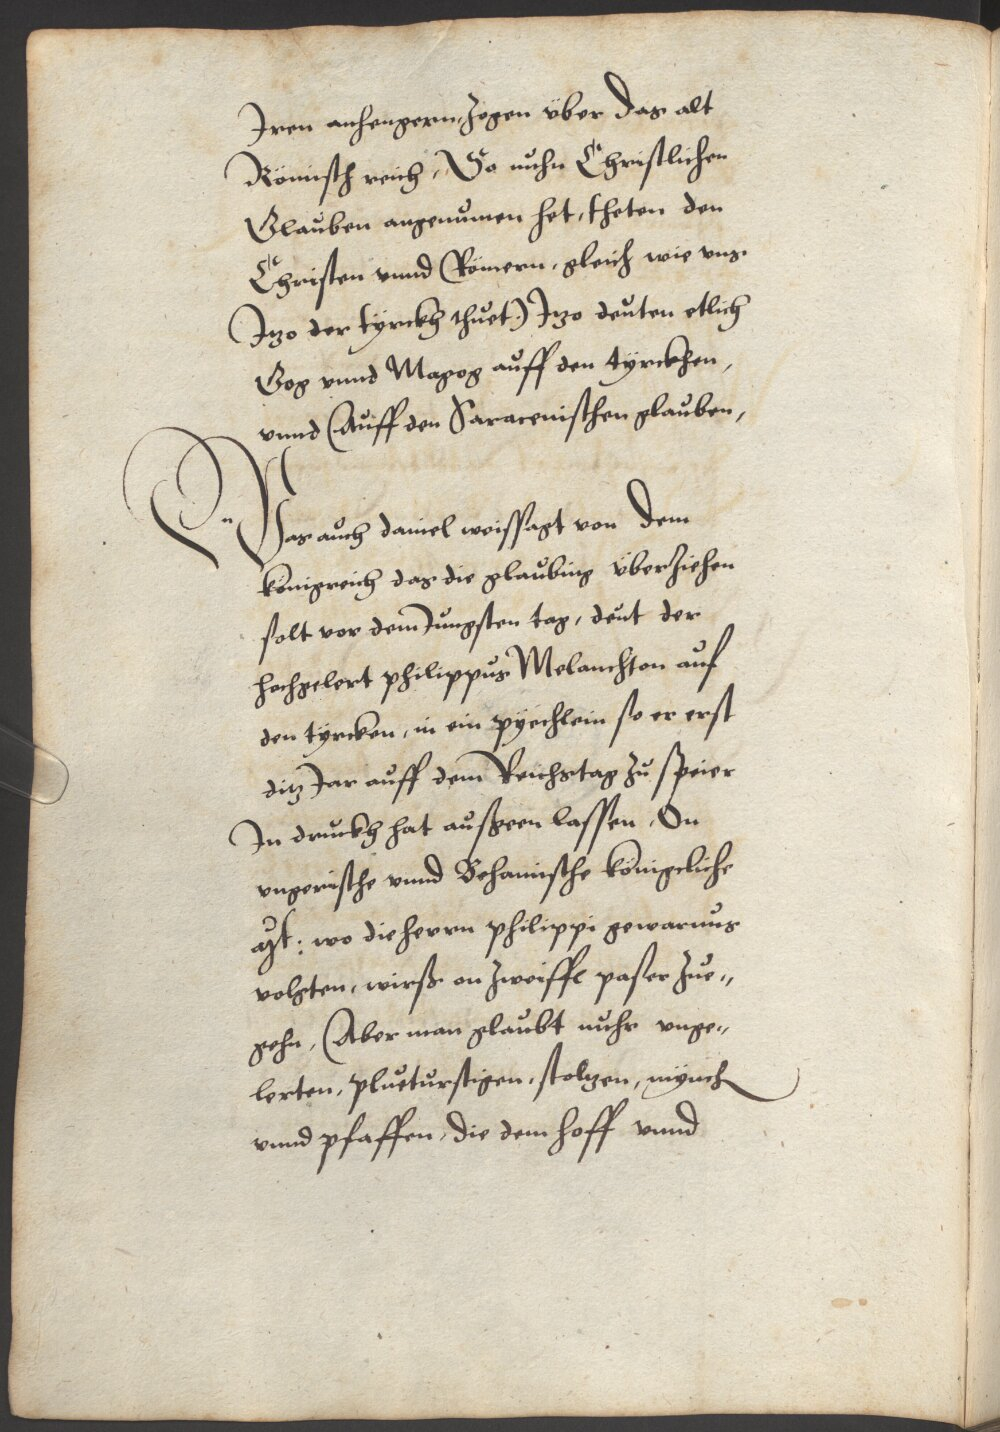 Iren anhengern, zogen über das alt
Römisch reich, So nuhn Christlichen
Glauben angenumen het, theten den
Christen vnnd Römern, gleich wie vns
Itzo der tyrckh thuet) Itzo deuten etlich
Gog vnnd Magog auff den tyrckhen,
vnnd Auff den Saracenischen glauben,
Was auch daniel weissagt von dem
königreich das die glaubing überziehen
solt vor dem Jungsten tag, deut der
hochgelert philippus Melanchton auf
den tyrcken, in ein pyechlein so er erst
ditz Jar auff dem Reichstag zu speier
In druckh hat außgeen lassen, An
vngerische vnnd Behamische königcliche
Mt: wo die herrn philippi gewarnus
volgten, wirß on zweiffl paßer zue„
gehn, Aber man glaubt nuhr vnge„
lerten, pluetturstigen, stoltzen, mynch
vnnd pfaffen, die dem hoff vnnd